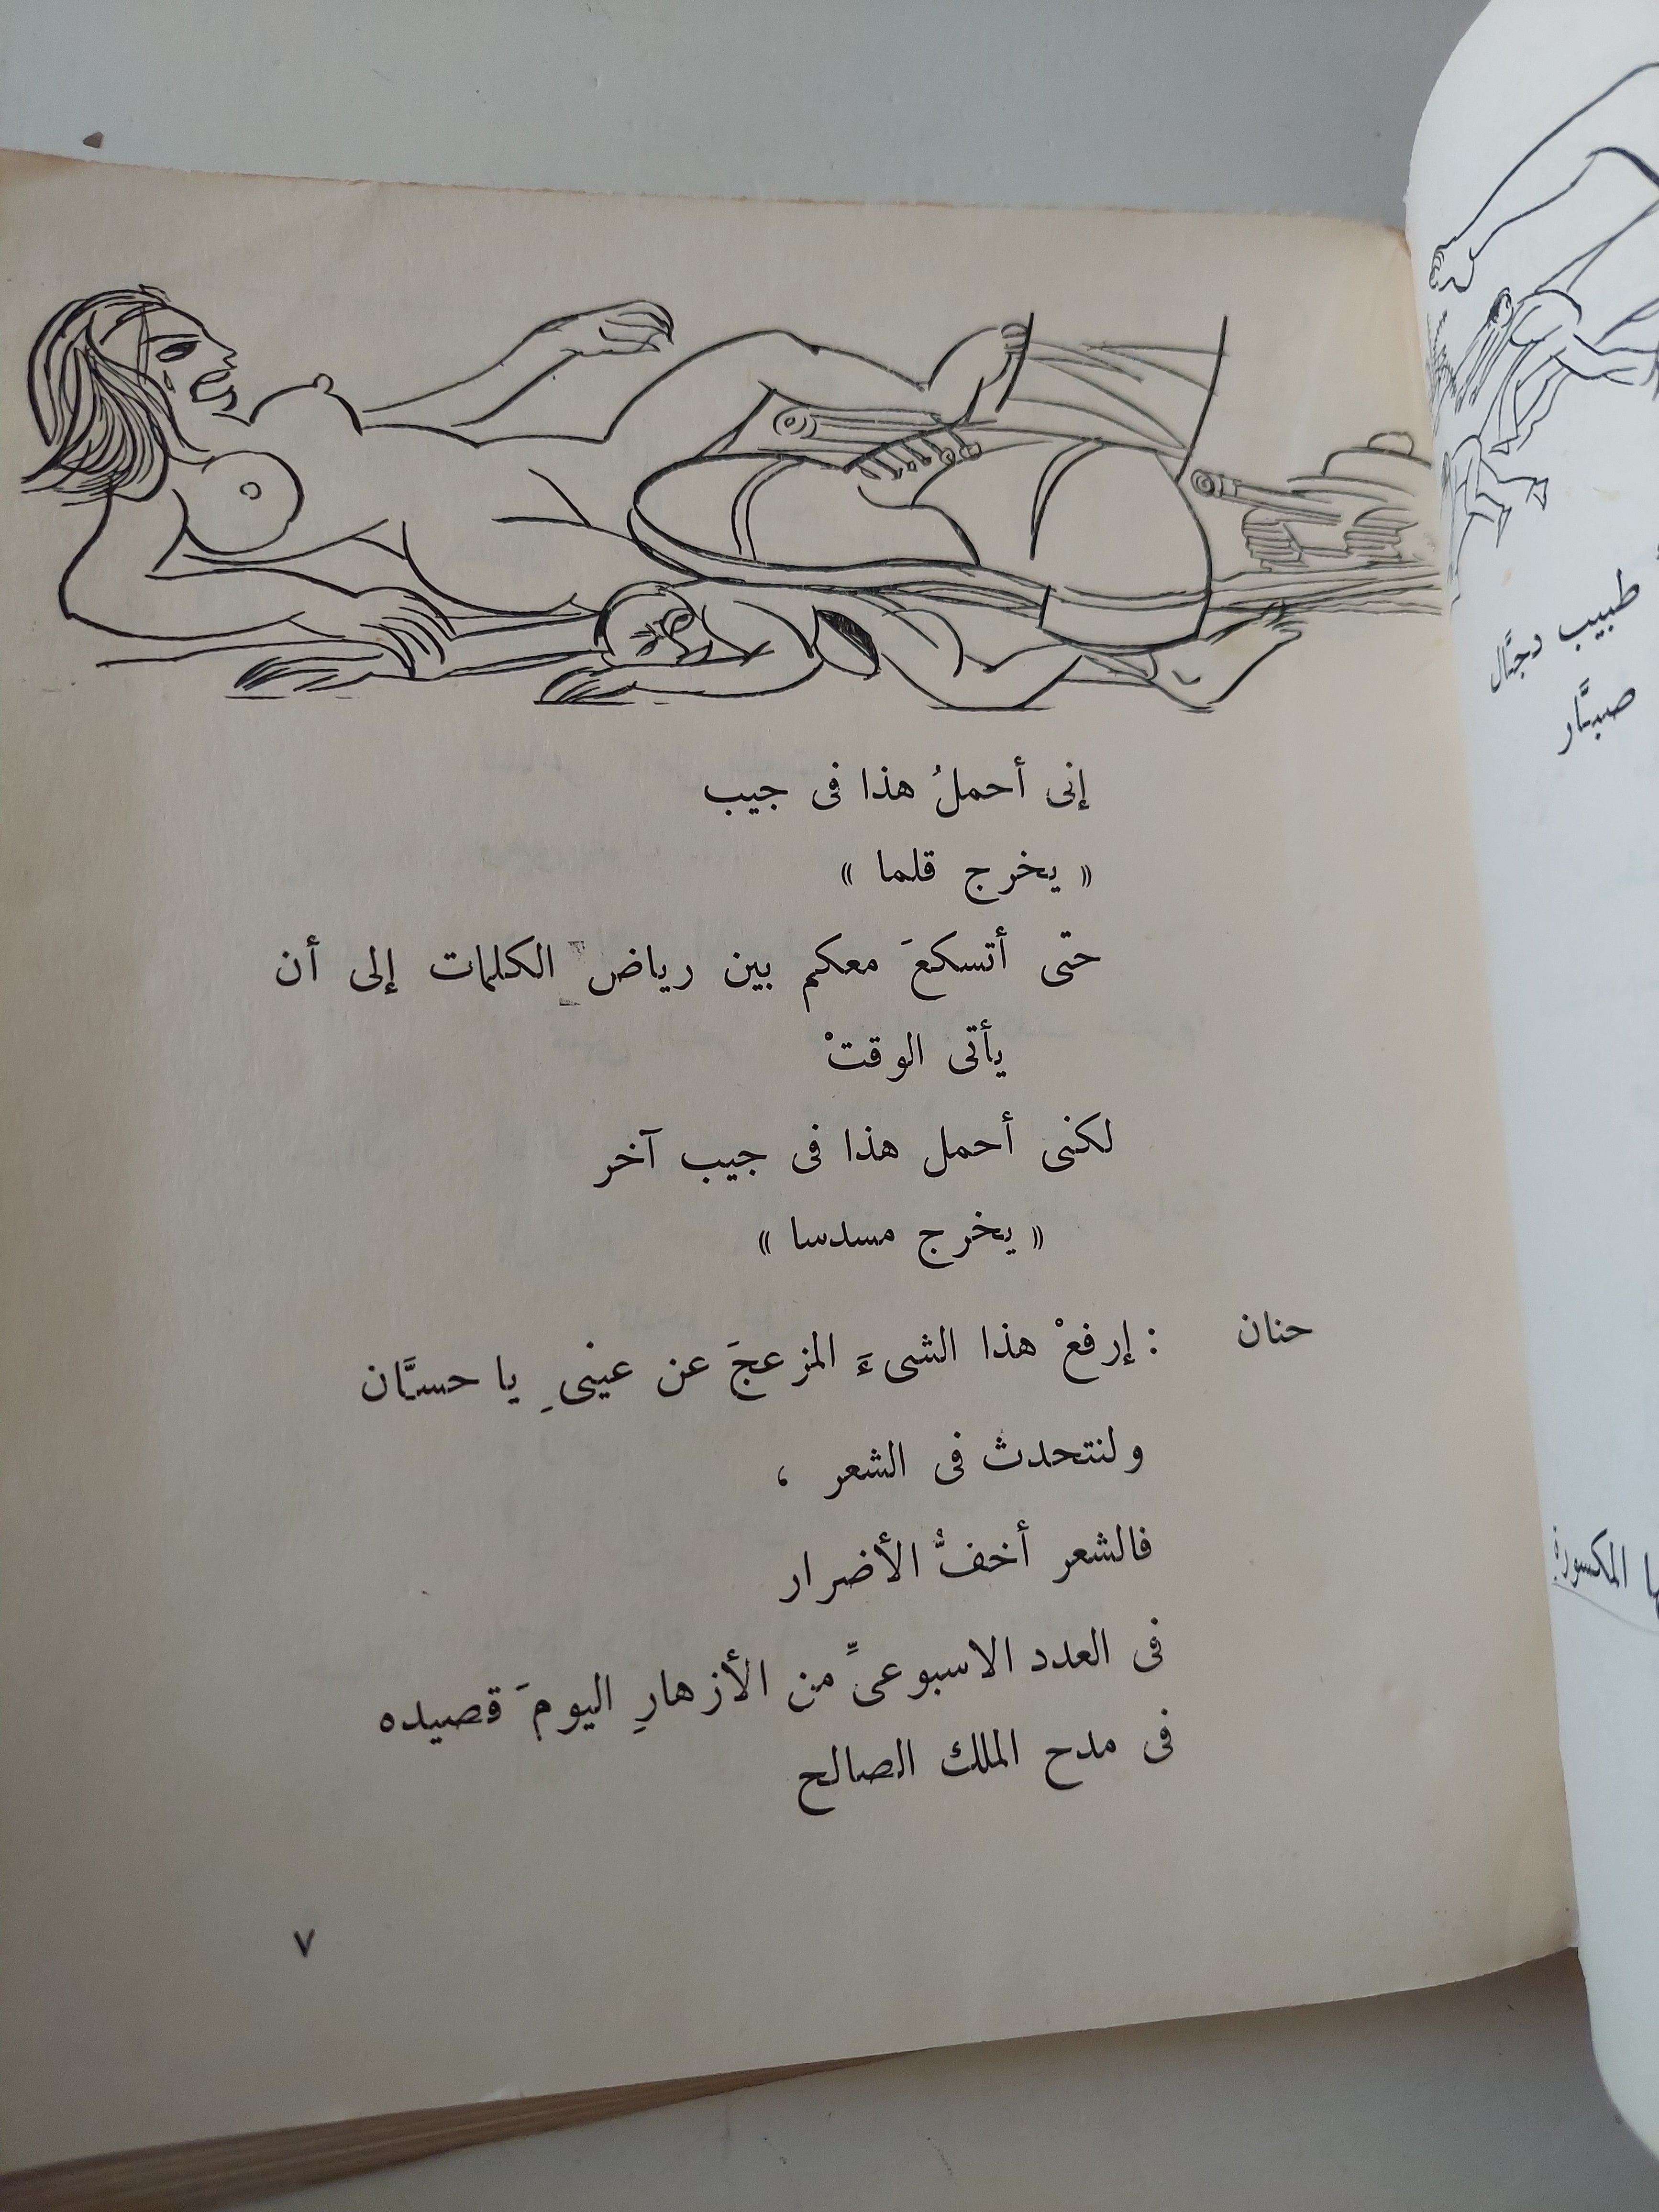 إنى أحملُ هذا فى جيب
« يخرج قلما »
حتى أتسكعَ معكم بين رياض الكلمات إلى أن
يأتى الوقتْ
لكنى أحمل هذا فى جيب آخر
« يخرج مسدسا »
حنان : إرفعْ هذا الشىءَ المزعجَ عن عينىِ يا حسَّان
ولنتحدث فى الشعر ،
فالشعر أخفُّ الأضرار
فى العدد الاسبوعىِّ من الأزهارِ اليومَ قصيده
فى مدح الملك الصالح
٧
طبيب دجَّال
صبَّار
المكسورة